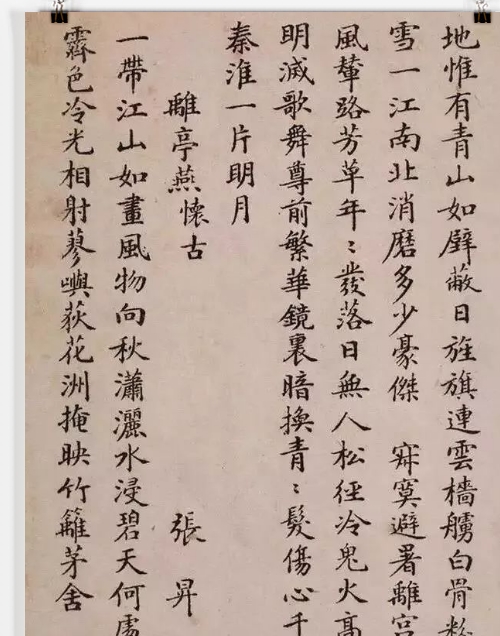 地惟有青山如壁蔽日旌旗連雲檣艣白骨粉
雪一江南北消磨多少豪傑 寂寞避暑離宮
風輦路芳草年〻發落日無人松徑冷鬼火高
明滅歌舞尊前繁華鏡裏暗換青〻髮傷心千
秦淮一片明月
離亭燕懷古 張昇
一帶江山如畫風物向秋瀟灑水浸碧天何處
霽色冷光相射蓼嶼荻花洲掩映竹籬茅舍